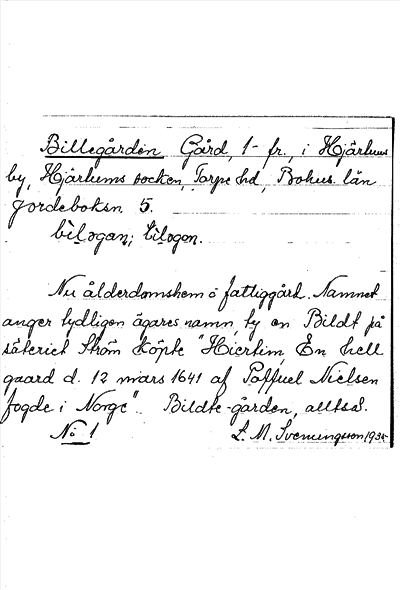 Billegården Gård, 1- fr., i Hjärtums
by, Hjärtums socken, Torpe hd, Bohus län
Jordeboksn. 5.
bìlogan; bìlogon.
Nu ålderdomshem o fattiggård. Namnet
anger tydligen ägares namn, ty en Bildt på
säteriet Ström köpte "Hiertim, En hell
gaard d. 12 mars 1641 af Poffuel Nielsen
fogde i Norge". Bildte-gården, alltså.
No 1 L. M. Svenungsson 1935